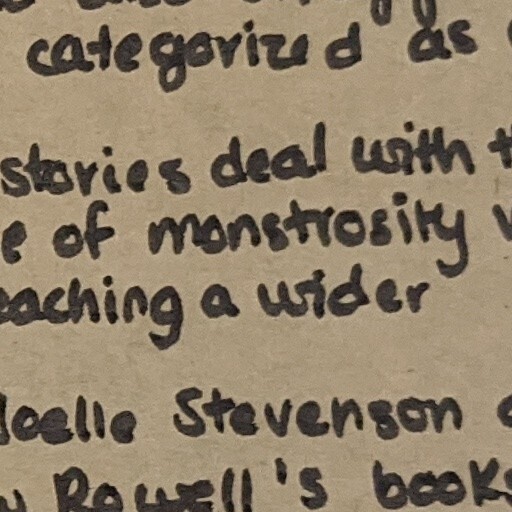 categorized as
stories deal with
of monstrosity
a wider
Stevenson
Rowell's books